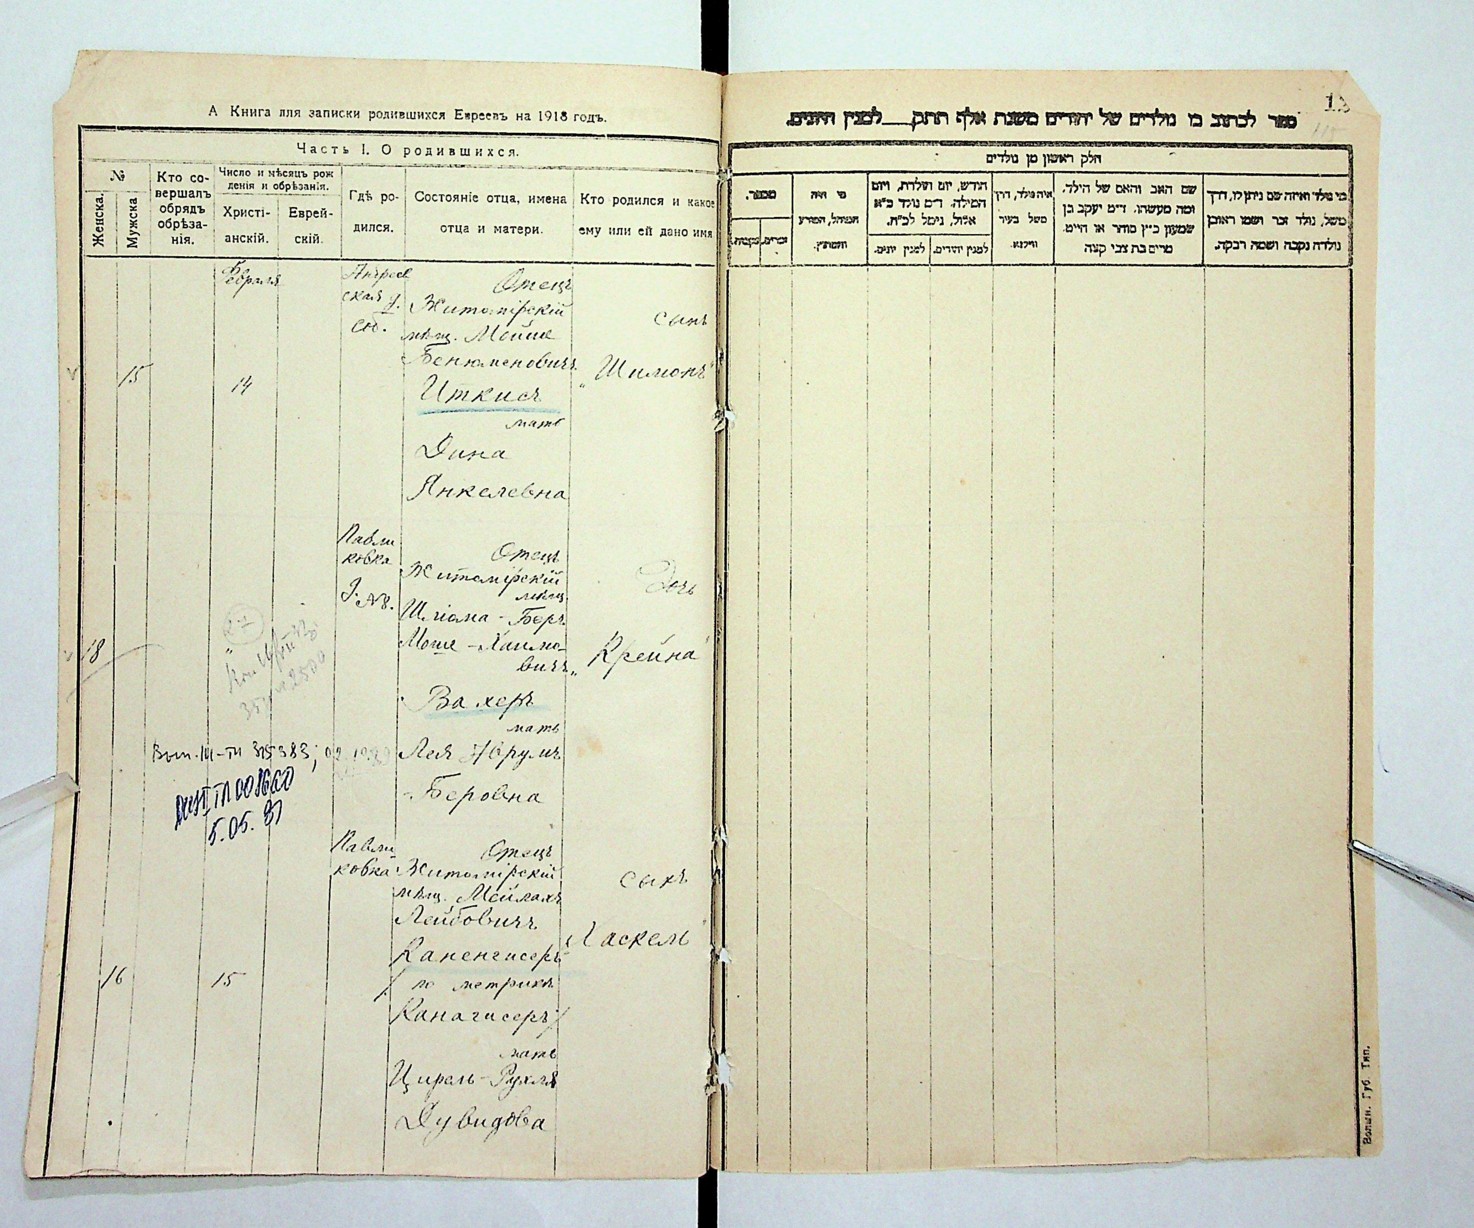 А Книга для записки родившихся Евреевъ на 1918 годъ.
Часть I. О родившихся.
№
Женска.
Мужска
Кто со-
вершалъ
обрядъ
обрѣза-
нія.
Число и мѣсяцъ рож
денія и обрѣзанія.
Христі-
анскій.
Еврей-
скій.
Гдѣ ро-
дился.
Состояніе отца, имена
отца и матери.
Кто родился и какое
ему или ей дано имя
Февраля
15
14
Отецъ
Житомірскій
мѣщ. Мойше
Бенюменовичъ
Иткисъ
мать
Дина
Янкелевна
сынъ
„Шимонъ"
18
Павли
ковка
Отецъ
Житомірскій
мѣщ.
Шліома-Беръ
Моше-Хаимо-
вичъ
Вахеръ
мать
Лея
Беровна
Дочь
„Крейна"
5.05.
16
15
Павли
ковка
Отецъ
Житомірскій
мѣщ. Меймахъ
Лейбовичъ
Каненгисеръ
/по метрикѣ
Канагисеръ/
мать
Цирель-Рухля
Дувидова
сынъ
„Хаскель"
ספר לכתוב בו נולדים של יהודים משנת אלף תתק למנין היונים.
חלק ראשון מן נולדים
מספר.
זכרים.
נקבות.
מי היה
המוהל, הפורע
והמוצץ
חודש, יום תולדת, ויום
המילה. ד״מ נולד כ״א
אלול, נימל לכ״ח.
למנין יונים.
למנין יהודים.
איה נולד, דרך
משל בעיר
ווילנא.
שם האב והאם של הילד.
ומה מעשהו. ד״מ יעקב בן
שמעון כ״ץ סוחר או חייט.
מרים בת צבי קצה
מי נולד ואיזה שם ניתן לו, דרך
משל, נולד זכר ושמו ראובן
נולדה נקבה ושמה רבקה.
Волын. Губ. Тип.